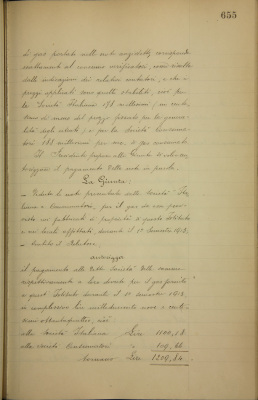 655
di gas portate nelle note suespedite corrispondono
esattamente al consumo verificatosi, come risulta
dalle indicazioni dei relativi contatori, e che i
prezzi applicati sono quelli stabiliti, cioè per
la Società Italiana 178 millesimi, un cente-
simo di meno del prezzo fissato per la genera-
lità degli utenti, e per la Società Consuma-
tori 188 millesimi per ora, il gas consumato.
Il Presidente propone alla Giunta di voler au-
torizzare il pagamento delle note in parola.
La Giunta:
- Vedute le note presentate dalla Società Ita-
liana e Consumatori, per il gas da esse for-
nito in fabbricati di proprietà di questo Istituto
o nei locali affittati, durante il 1° Semestre 1913,
- Sentito il Relatore
autorizza
il pagamento alle dette Società delle somme
rispettivamente a loro dovute per il gas fornito
a questo Istituto durante il 1° semestre 1913,
in complessive lire milleduecento nove e cente-
simi ottantaquattro, cioè:
alla Società Italiana Lire 1100,18
alla società Consumatori " 109,66
Sommano Lire 1209,84